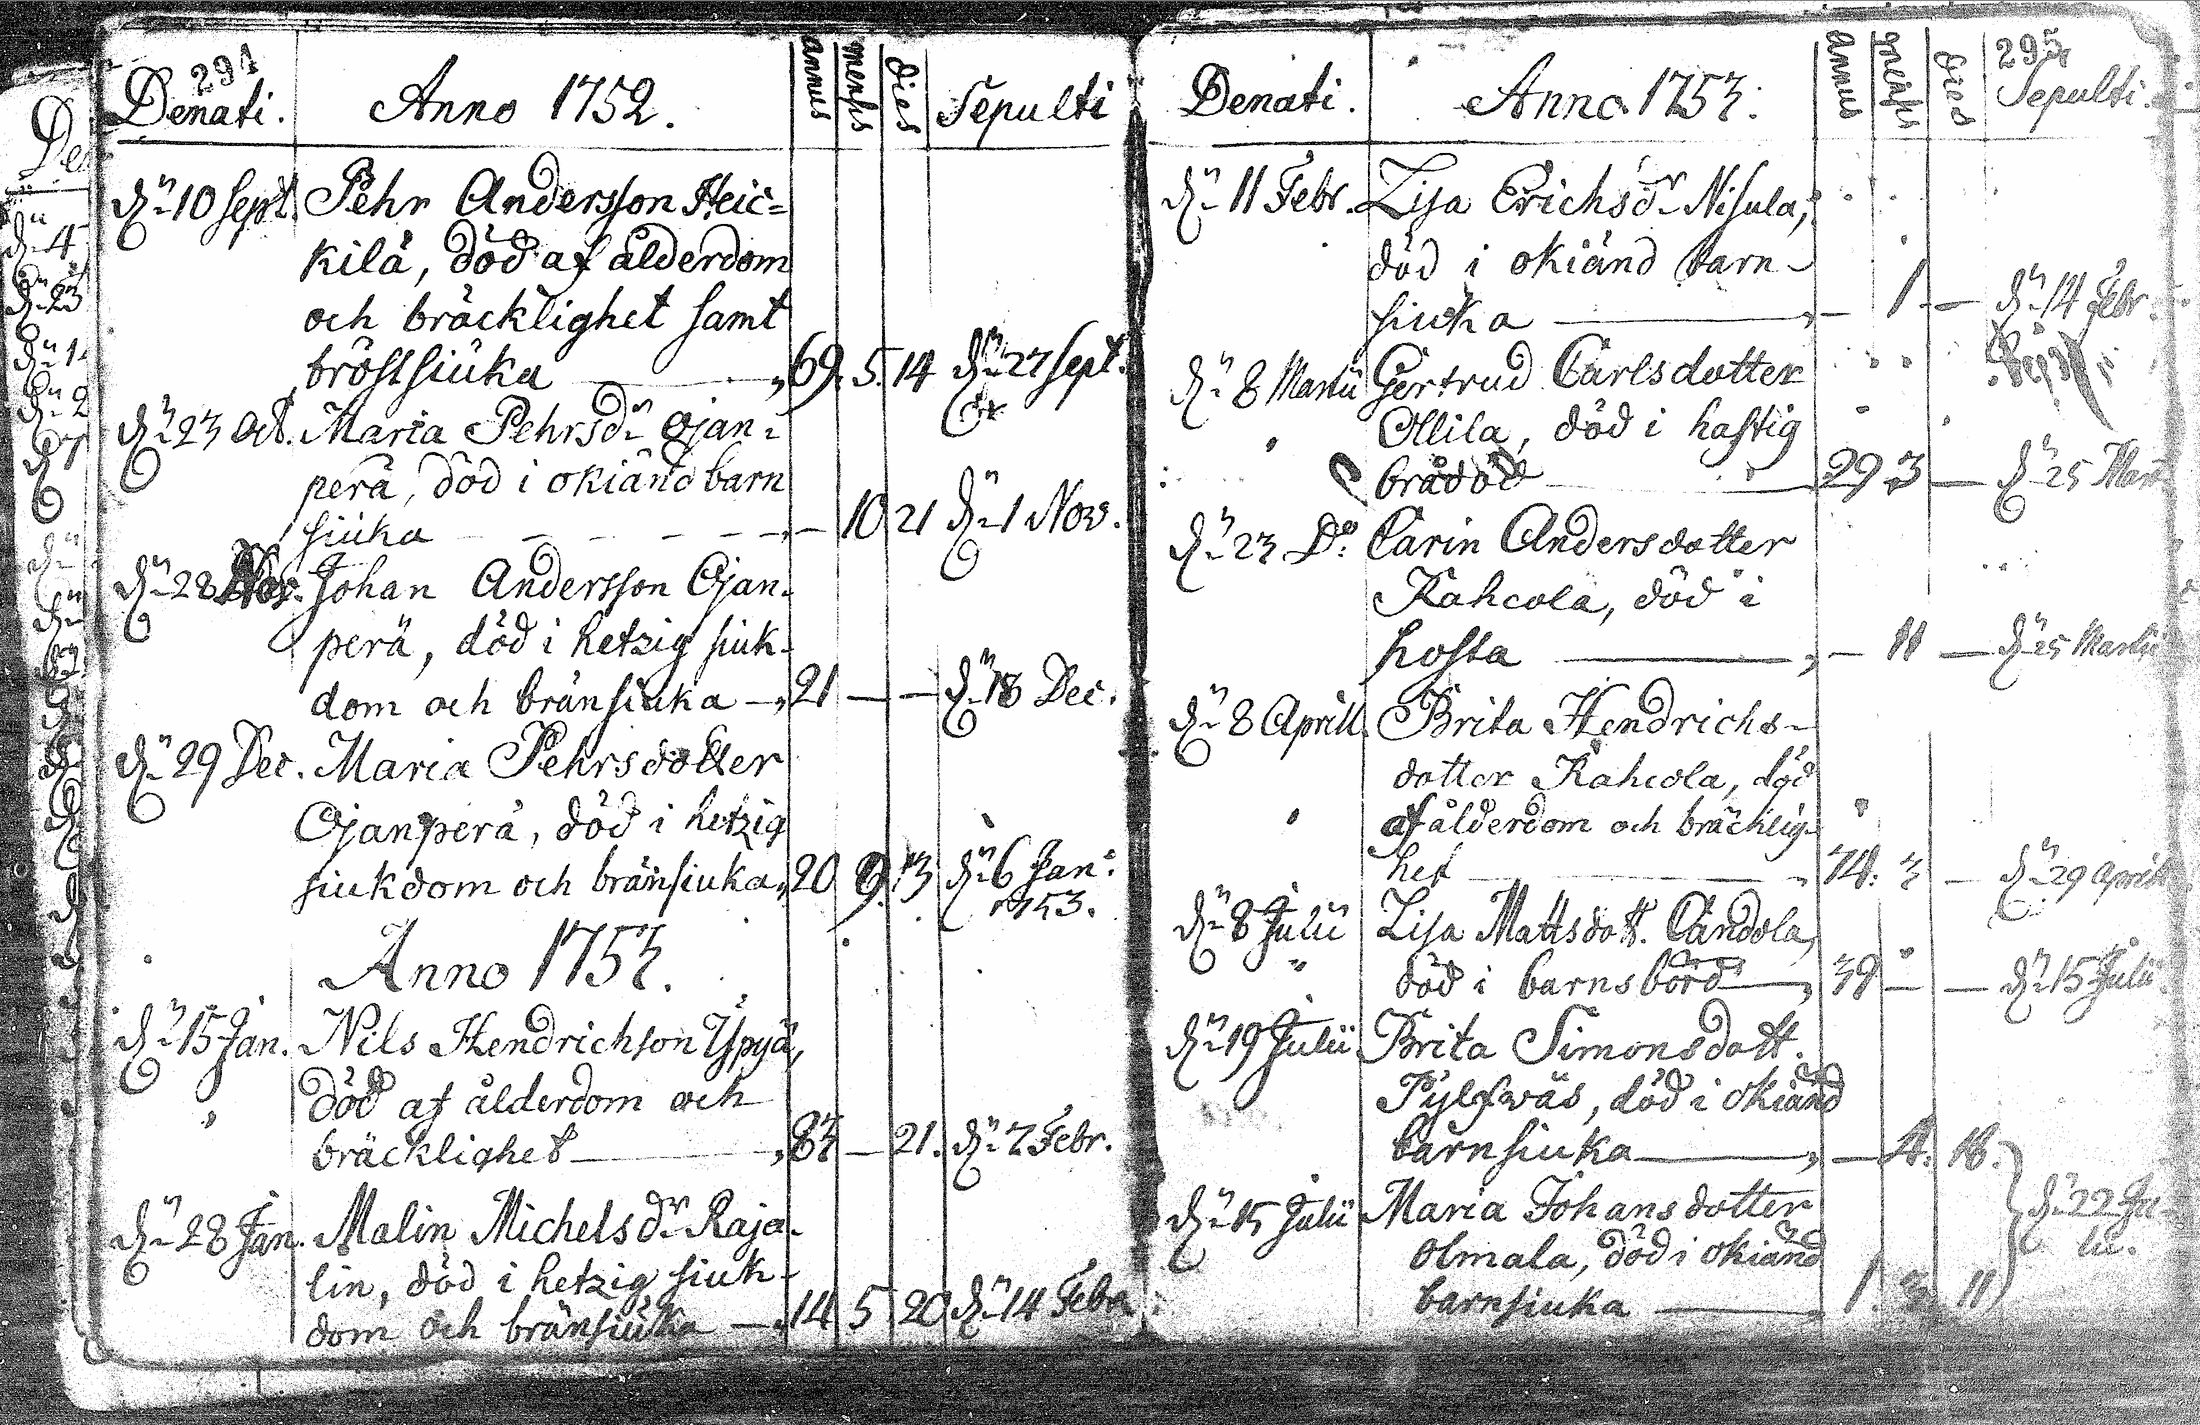 291
Denati. Anno 1752. annus menses dies Sepulti
dn 10 Sept. Pehr Andersson Heic=
kilä, död af ålderdom
och bräcklighet samt
bröstsiuka 69. 5. 14 dn 27 Sept.
dn 23 Oct. Maria Pehrsdr Ojan-
perä, död i okiänd barn
siuka - 10 21 dn 1 Nov.
dn 28 Nov. Johan Andersson Ojan-
perä, död i hetzig siuk-
dom och bränsiuka 21 — — dn 18 Dec.
dn 29 Dec. Maria Pehrsdotter
Ojanperä, död i hetzig
siukdom och bränsiuka 20 9. 13 dn 6 Jan.
1753.
Anno 1753.
dn 15 Jan. Nils Hendrichson Ypyä,
död af ålderdom och
bräcklighet 83 — 21. dn 2 Febr.
dn 28 Jan. Malin Michelsdr Raja-
lin, död i hetzig siuk-
dom och bränsiuka 14 5 20 dn 14 Febr
295
Denati. Anno 1753. annus menses dies Sepulti.
dn 11 Febr. Lisa Erichsdr Nisula,
död i okiänd barn-
siuka — 1 — dn 14 Febr.
dn 8 Martii Gertrud Carlsdotter
Ollila, död i hastig
brådöd 29 3 — dn 25 Mart
dn 23 Do: Carin Andersdotter
Kahcola, död i
hosta — 11 — dn 25 Martii
dn 8 Aprill. Brita Hendrichs-
dotter Kahcola, död
af ålderdom och bräcklig-
het 74. 3 — dn 29 Aprill
dn 8 Julii Lisa Mattsdott. Candola,
död i barnsbörd 39 — — dn 15 Julii.
dn 19 Julii Brita Simonsdott.
Pylfwäs, död i okiänd
barnsiuka — 4. 18.
dn 15 Julii Maria Johansdotter dn 22 Ju-
Olmala, död i okiänd lii.
barnsiuka 1. 3 11